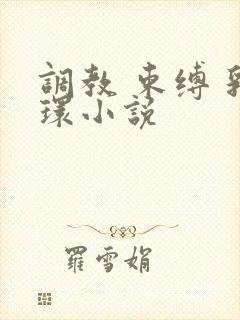 調教 束缚 乳
環小説
羅雪娟